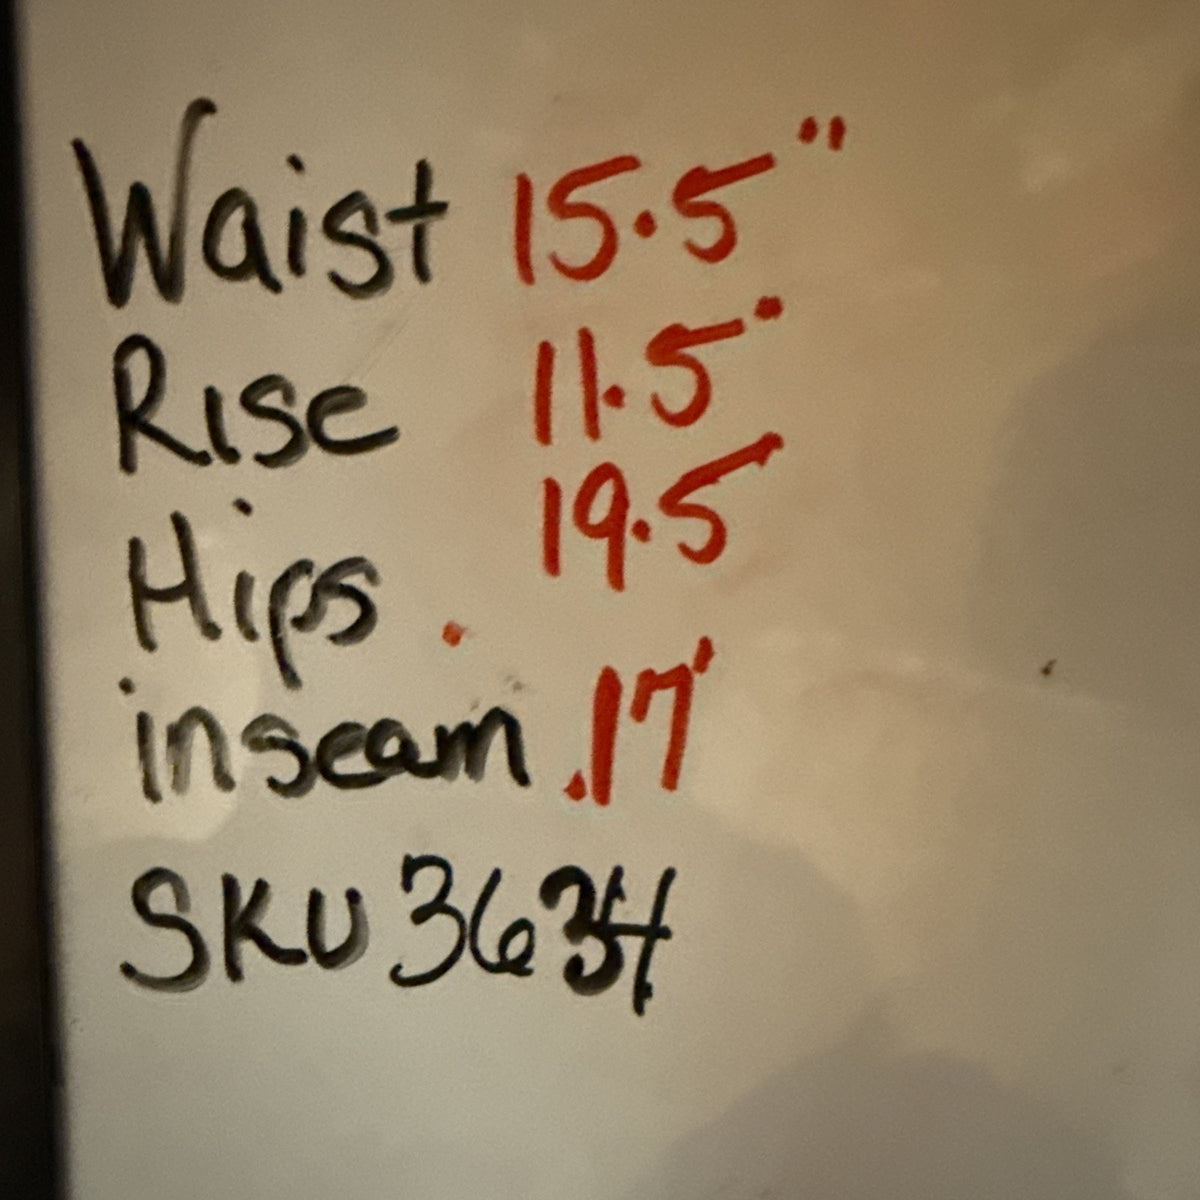 Waist 15.5"
Rise 11.5"
Hips 19.5
inseam .17'
SKU 3634